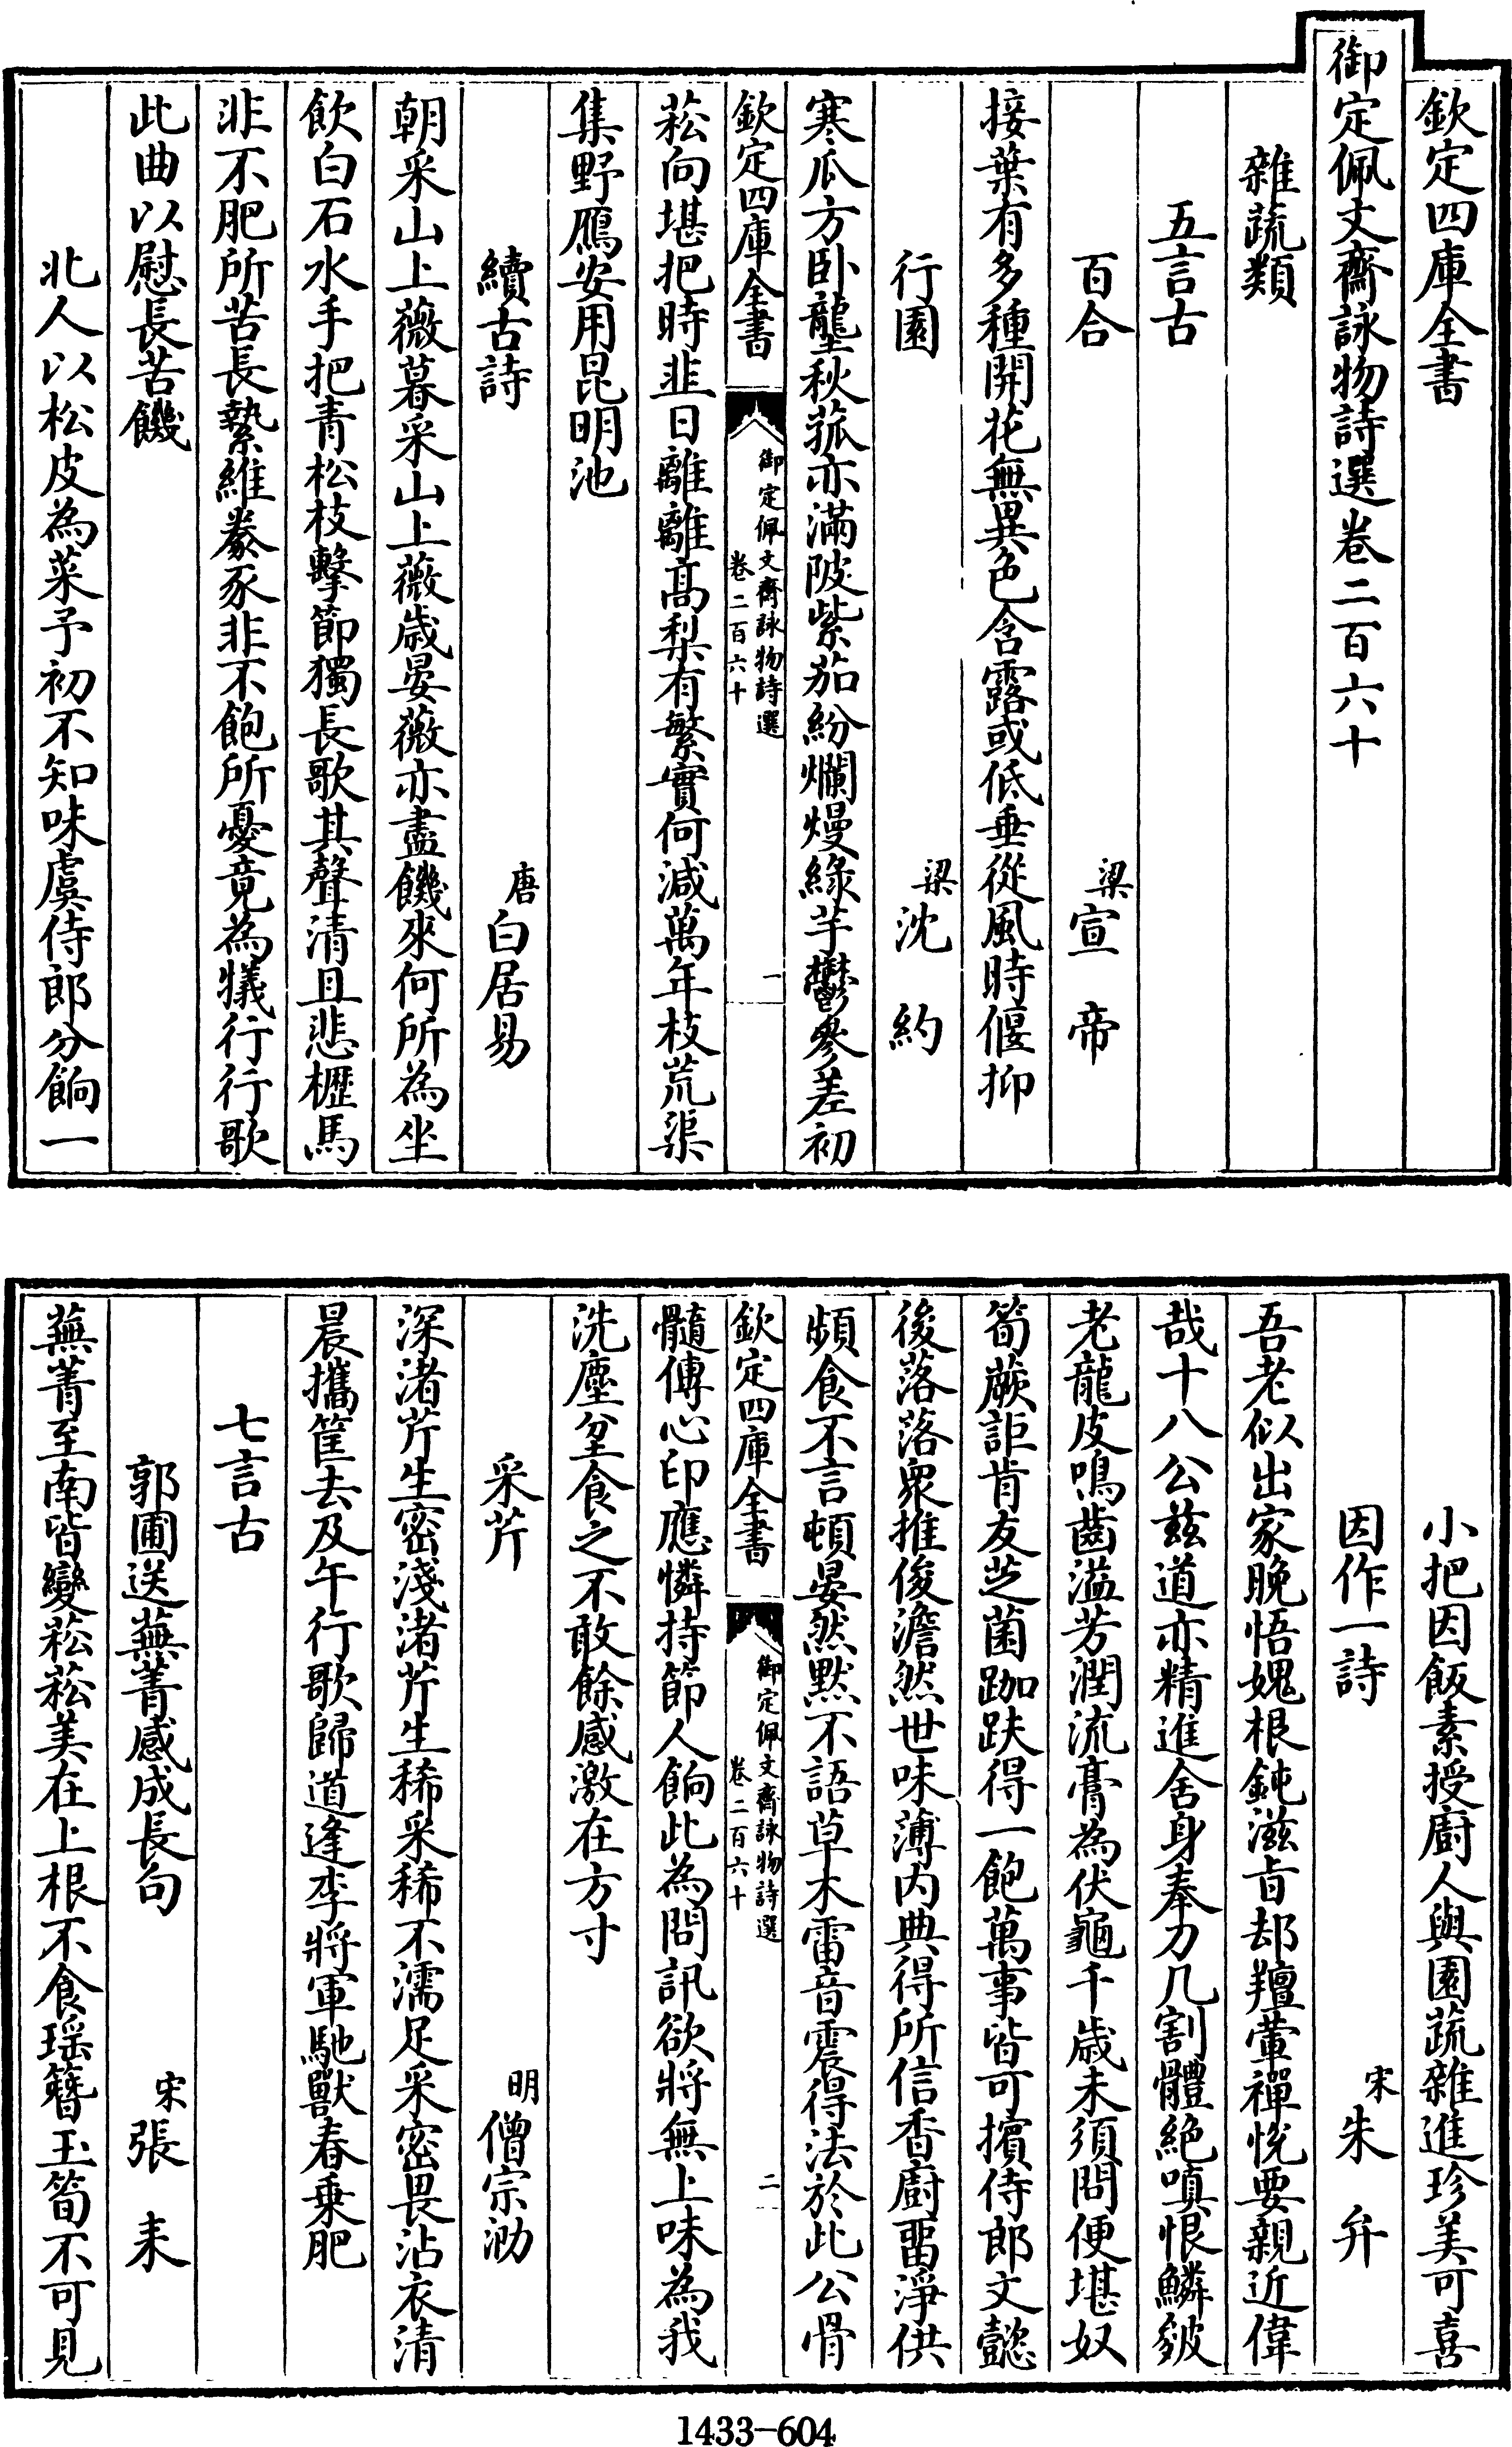 欽定四庫全書
御定佩文齋詠物詩選卷二百六十
雜蔬類
五言古
百合 梁宣帝
接葉有多種開花無異色含露或低垂從風時偃抑
行園 梁沈約
寒瓜方卧壟秋菰亦滿陂紫茄紛爛熳綠芋鬱參差初
欽定四庫全書 御定佩文齋詠物詩選 卷二百六十 一
菘向堪把時韭日離離高梨有繁實何減萬年枝荒渠
集野鴈安用昆明池
續古詩 唐白居易
朝采山上薇暮采山上薇歳晏薇亦盡饑來何所為坐
飲白石水手把青松枝擊節獨長歌其聲清且悲櫪馬
非不肥所苦長縶維豢豕非不飽所憂竟為犧行行歌
此曲以慰長苦饑
北人以松皮為菜予初不知味虞侍郎分餉一
小把因飯素授廚人與園蔬雜進珍美可喜
因作一詩 宋朱弁
吾老似出家晚悟媿根鈍滋旨却羶葷禪悅要親近偉
哉十八公兹道亦精進舍身奉刀几割體絶嗔恨鱗皴
老龍皮鳴齒溢芳潤流膏為伏龜千歳未須問便堪奴
筍蕨詎肯友芝菌跏趺得一飽萬事皆可擯侍郎文懿
後落落衆推俊澹然世味薄内典得所信香廚畱淨供
頻食不言頓晏然默不語草木雷音震得法於此公骨
欽定四庫全書 御定佩文齋詠物詩選 卷二百六十 二
髓傳心印應憐持節人餉此為問訊欲將無上味為我
洗塵坌食之不敢餘感激在方寸
采芹 明僧宗泐
深渚芹生密淺渚芹生稀采稀不濡足采密畏沾衣清
晨攜筐去及午行歌歸道逢李將軍馳獸春乗肥
七言古
郭圃送蕪菁感成長句 宋張耒
蕪菁至南皆變菘菘美在上根不食瑶簪玉筍不可見
1433-604